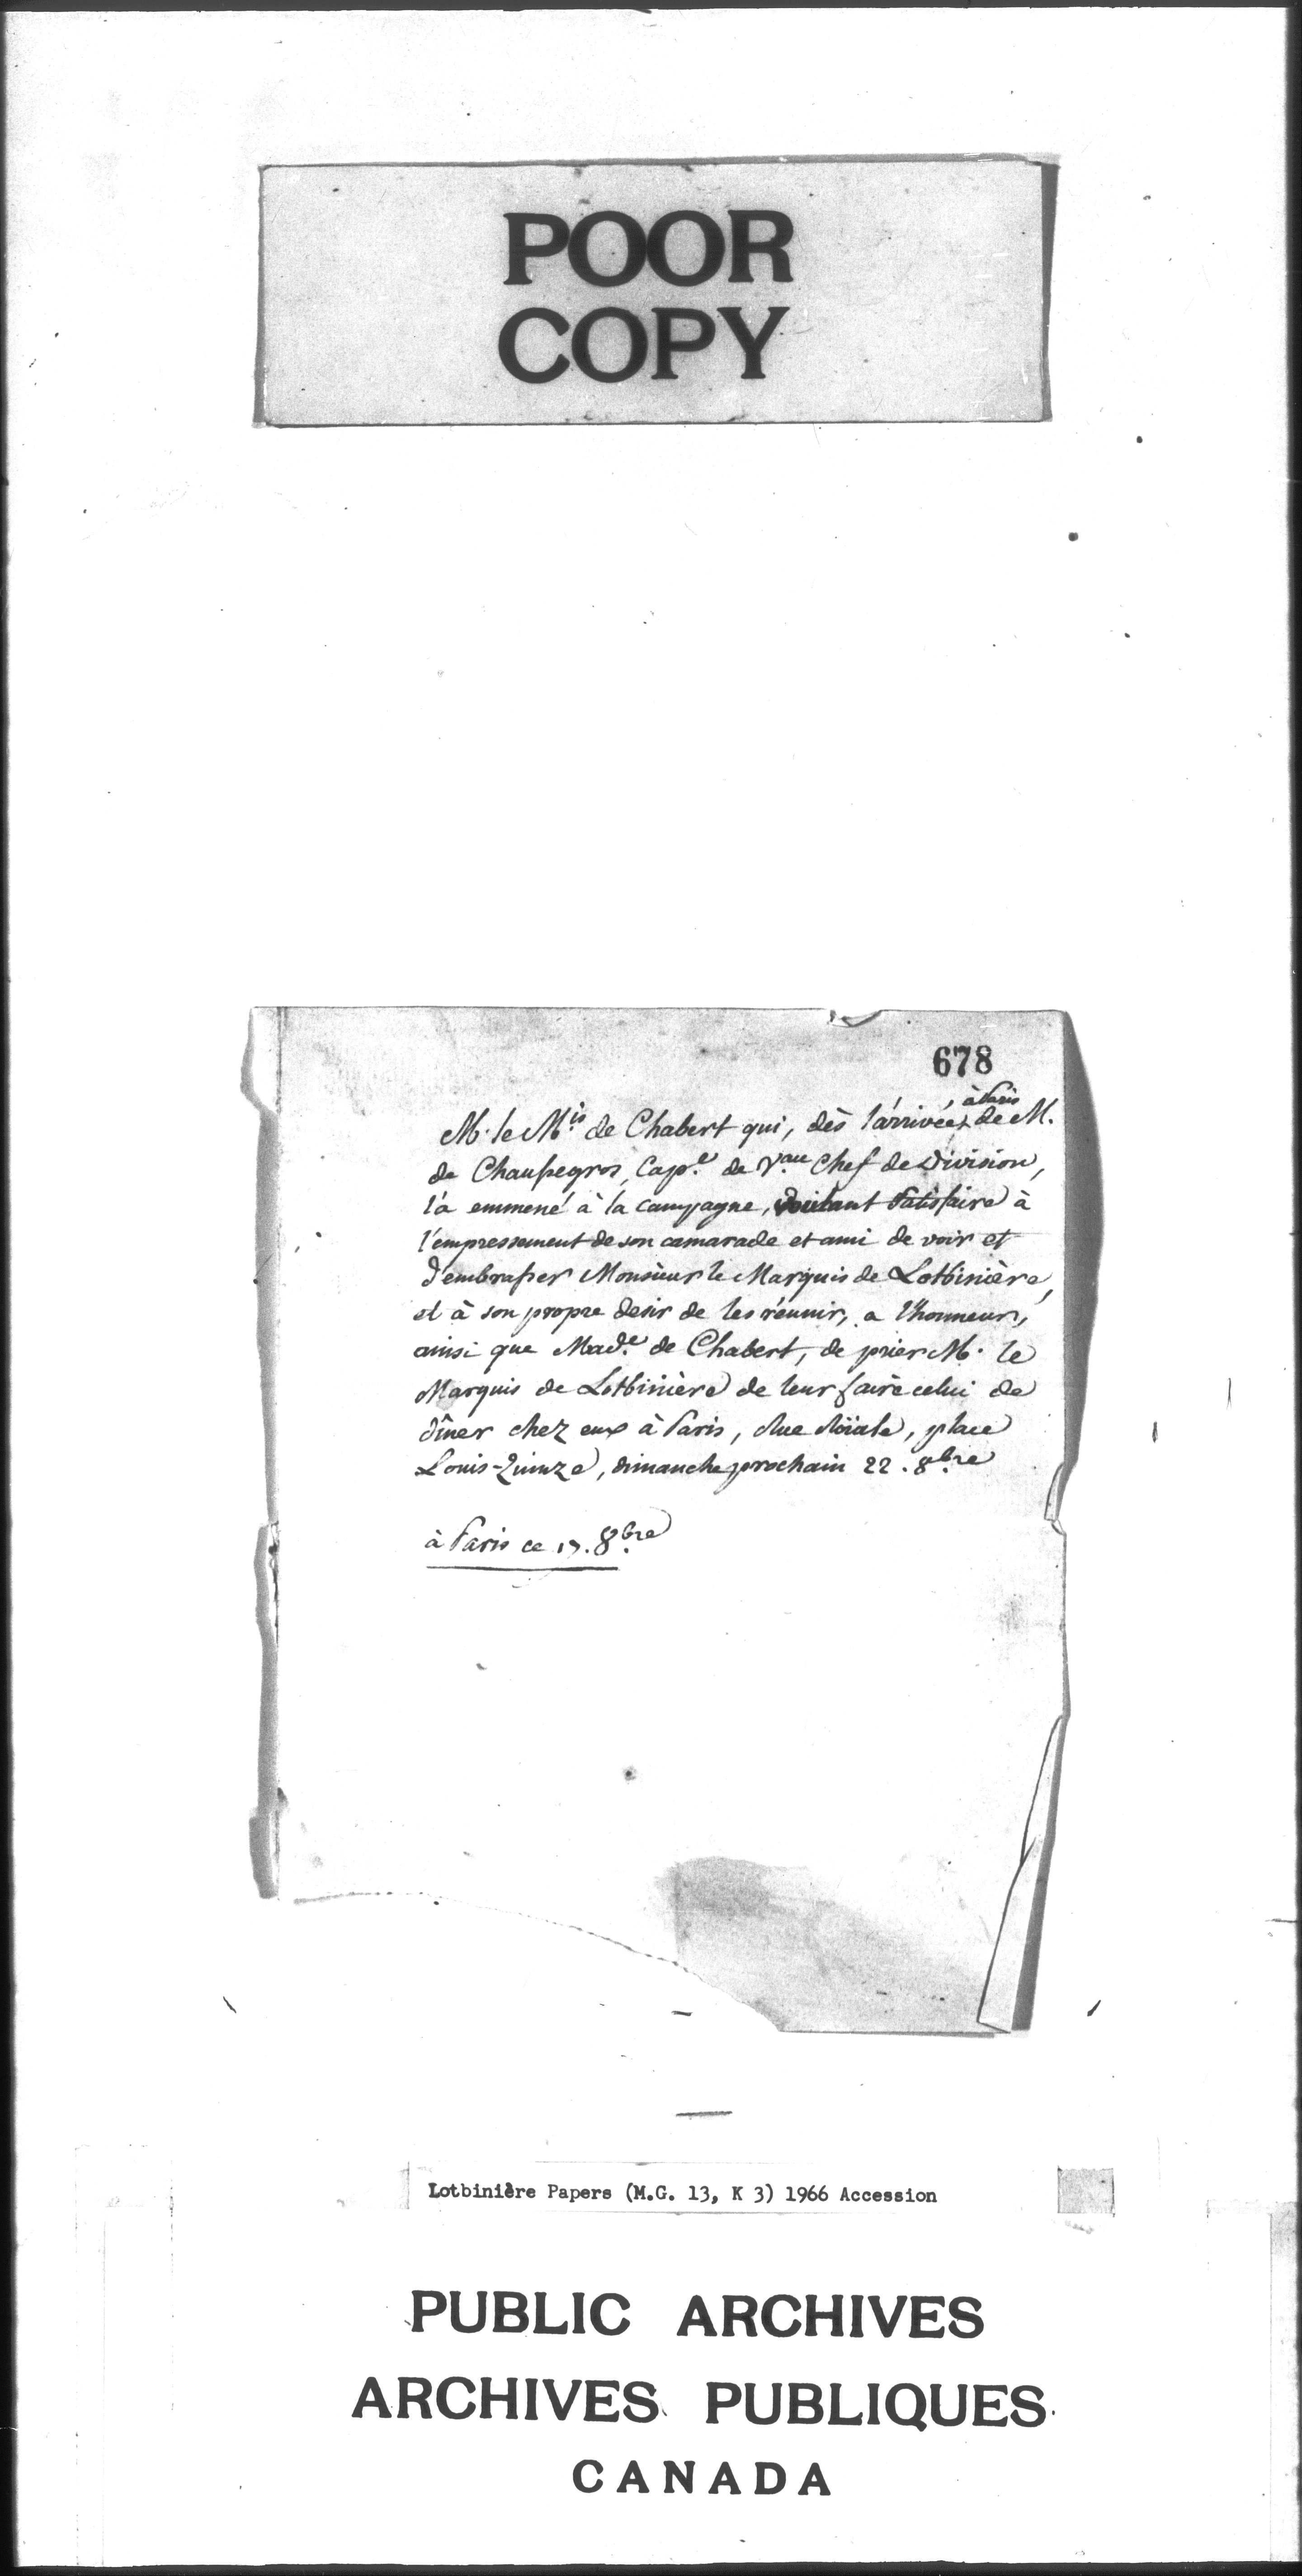 POOR
COPY
678
, à Paris
M. le M.is de Chabert qui, dès l'arrivée de M.
de Chaussegros, Cap.e de V.au chef de Division,
l'a emmené à la campagne, voulant satisfaire à
l'empressement de son camarade et ami de voir et
d'embrasser Monsieur le Marquis de Lotbinière,
et à son propre desir de les réunir, a l'honneur,
ainsi que Mad.e de Chabert, de prier M. le
Marquis de Lotbinière de leur faire celui de
dîner chez eux à Paris, Rue Roïale, place
Louis-Quinze, dimanche prochain 22. 8bre
à Paris ce 17. 8bre
Lotbinière Papers (M.G. 13, K 3) 1966 Accession
PUBLIC ARCHIVES
ARCHIVES PUBLIQUES
CANADA